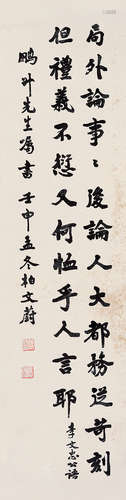 局外論事事後論人大都務從苛刻
但禮義不愆又何恤乎人言耶李文忠公語
鵬升先生屬書壬申孟冬柏文蔚